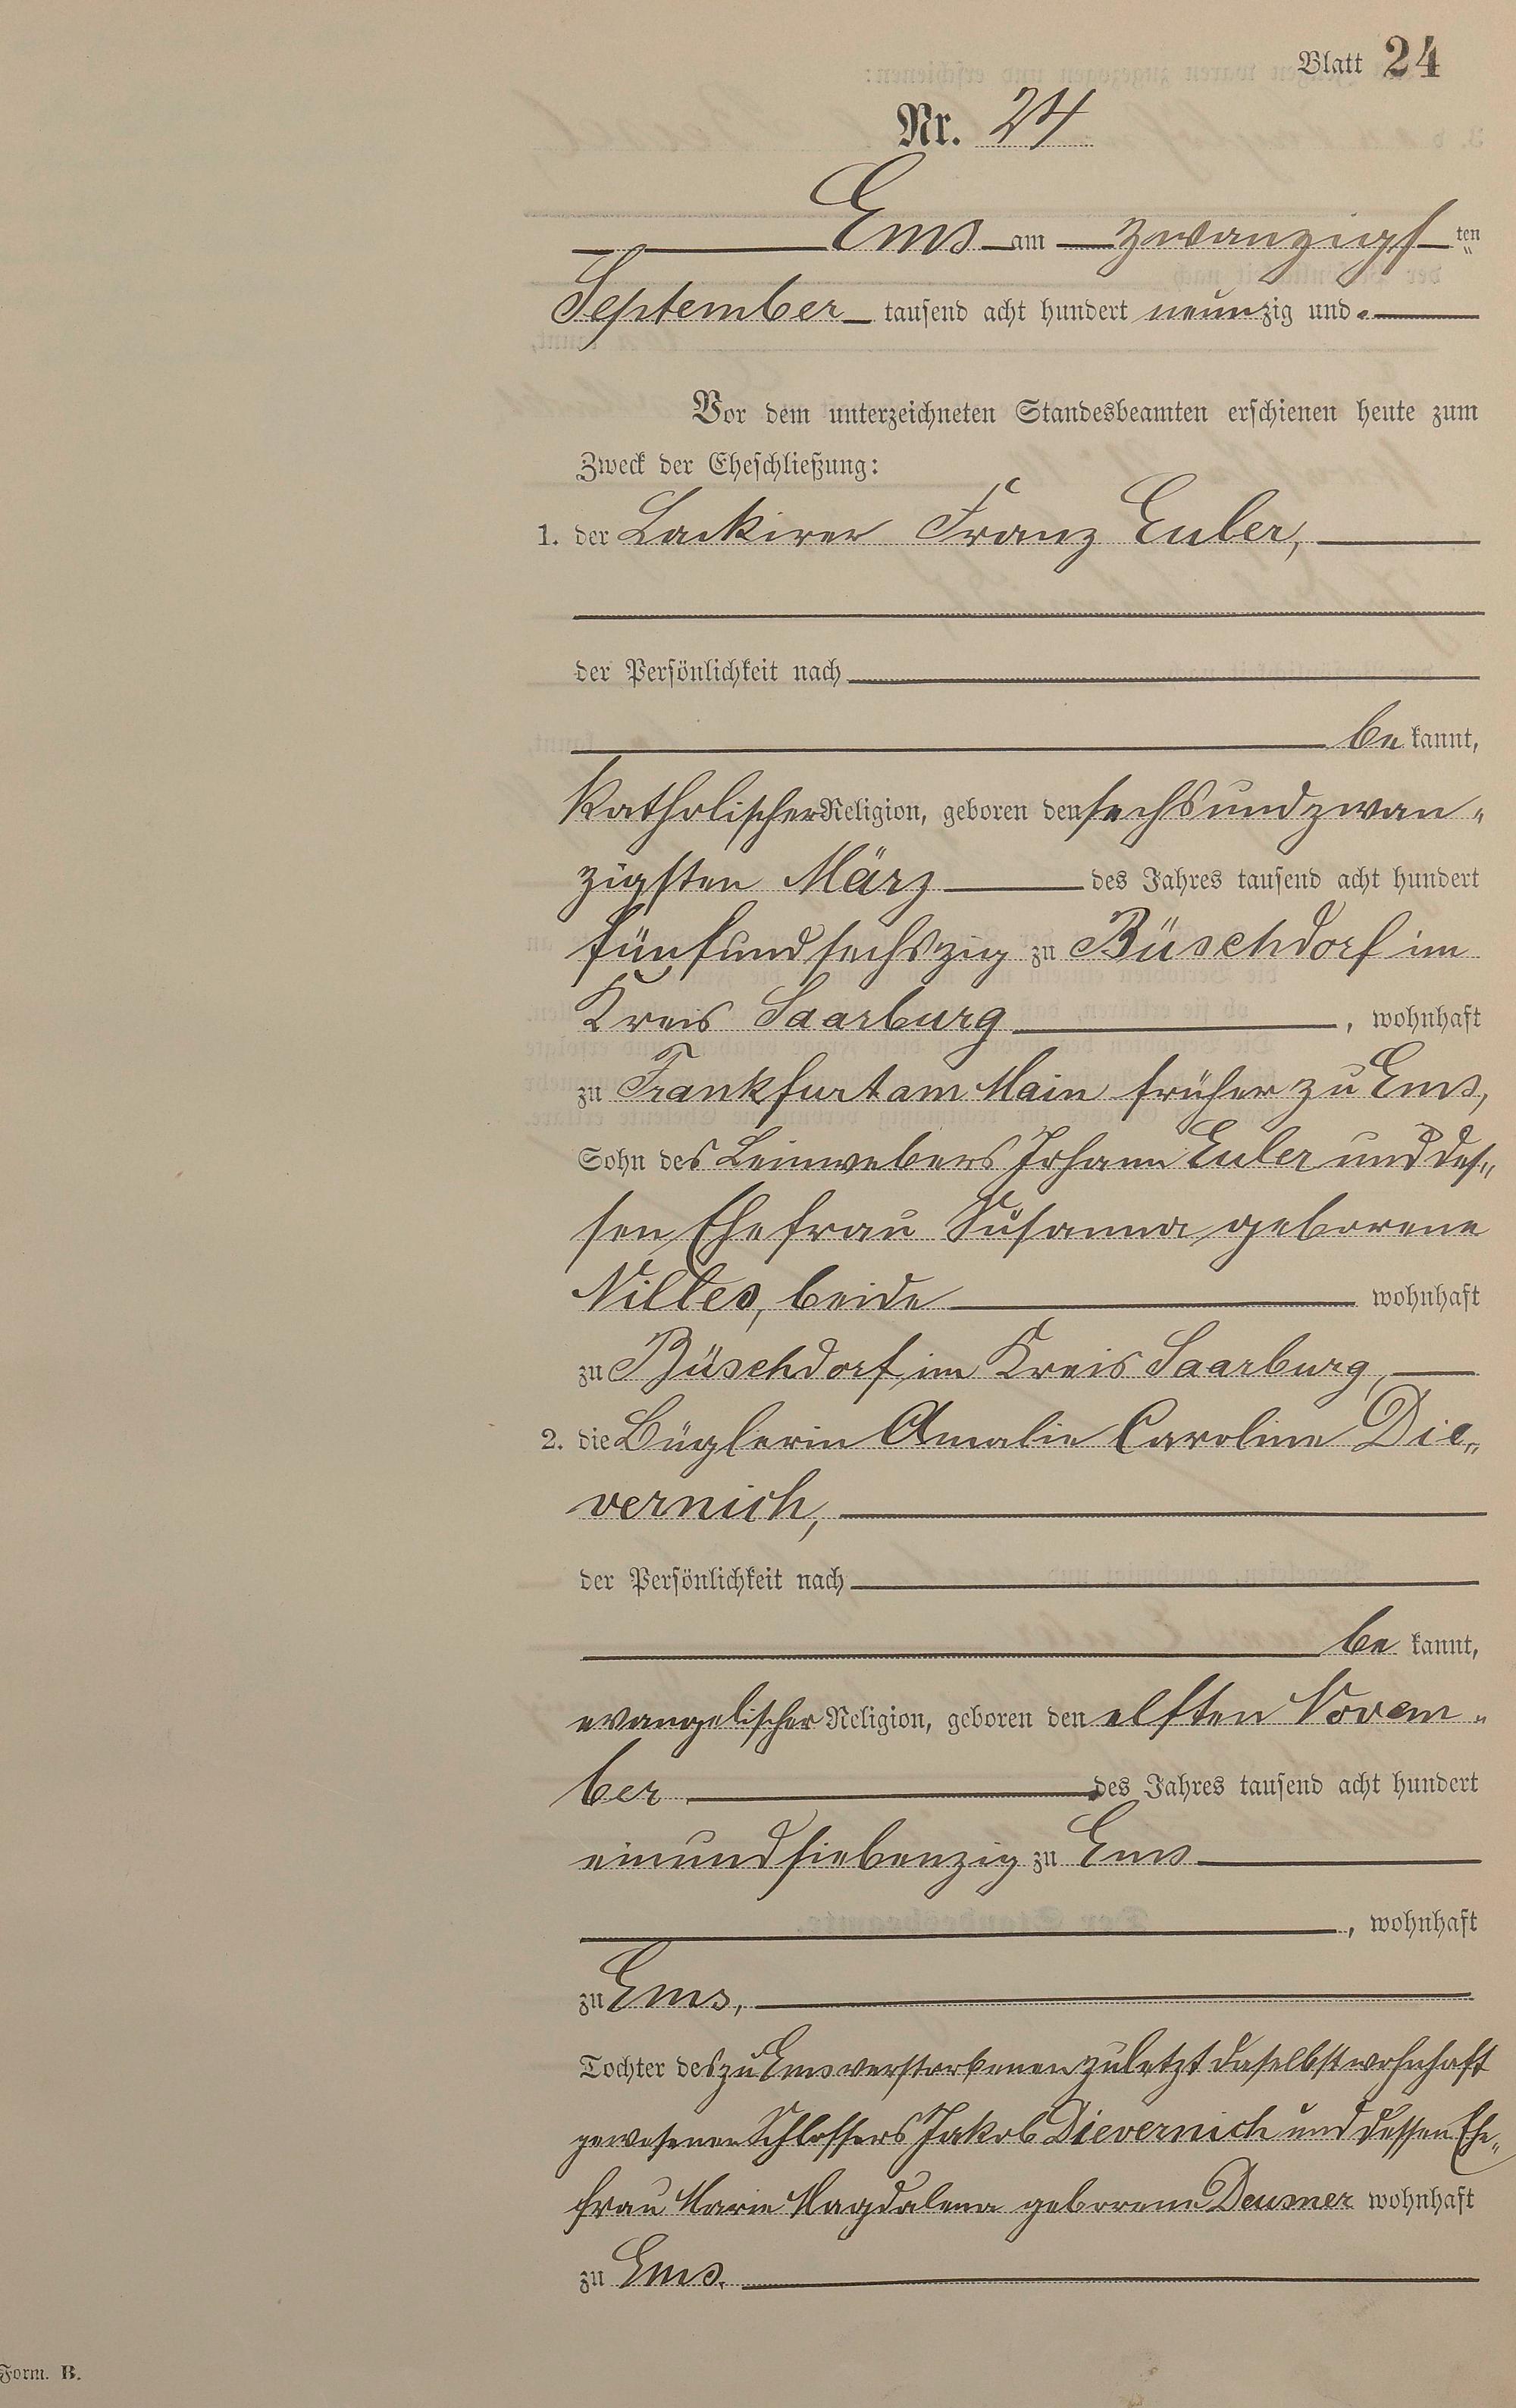 Blatt 24
Nr. 24
Ems am zwanzigst ten
September tausend acht hundert neunzig und
Vor dem unterzeichneten Standesbeamten erschienen heute zum
Zweck der Eheschließung:
1. der Lackirer Franz Euler,
der Persönlichkeit nach
be kannt,
katholischer Religion, geboren den sechsundzwan-
zigsten März des Jahres tausend acht hundert
fünfundsechszig zu Büschdorf im
Kreis Saarburg, wohnhaft
zu Frankfurt am Main früher zu Ems,
Sohn des Leinwebers Johann Euler und des-
sen Ehefrau Susanna geborene
Nilles, beide wohnhaft
zu Büschdorf im Kreis Saarburg,
2. die Büglerin Amalie Caroline Die-
vernich,
der Persönlichkeit nach
be kannt,
evangelischer Religion, geboren den elften Novem-
ber des Jahres tausend acht hundert
einundsiebenzig zu Ems
, wohnhaft
zu Ems,
Tochter des zu Ems verstorbenen zuletzt daselbst wohnhaft
gewesenen Schlossers Jakob Dievernich und dessen Ehe-
frau Marie Magdalena geborene Deusner wohnhaft
zu Ems.
Form. B.